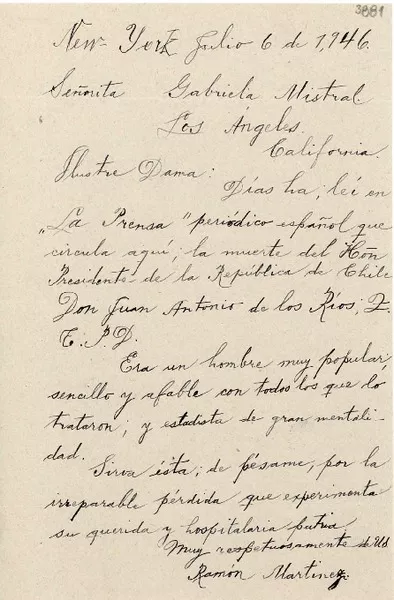 3881
New-York Julio 6 de 1,946.
Señorita Gabriela Mistral.
Los Ángeles.
California.
Ilustre Dama:
Días ha, leí en
"La Prensa" periódico español que
circula aquí; la muerte del Hôn
Presidente de la República de Chile
Don Juan Antonio de los Ríos; Z.
E. P. D.
Era un hombre muy popular,
sencillo y afable con todos los que lo
trataron; y estadista de gran mentali-
dad.
Sirva ésta; de pésame, por la
irreparable pérdida que experimenta
su querida y hospitalaria patria.
Muy respetuosamente de Ud
Ramón Martinez.